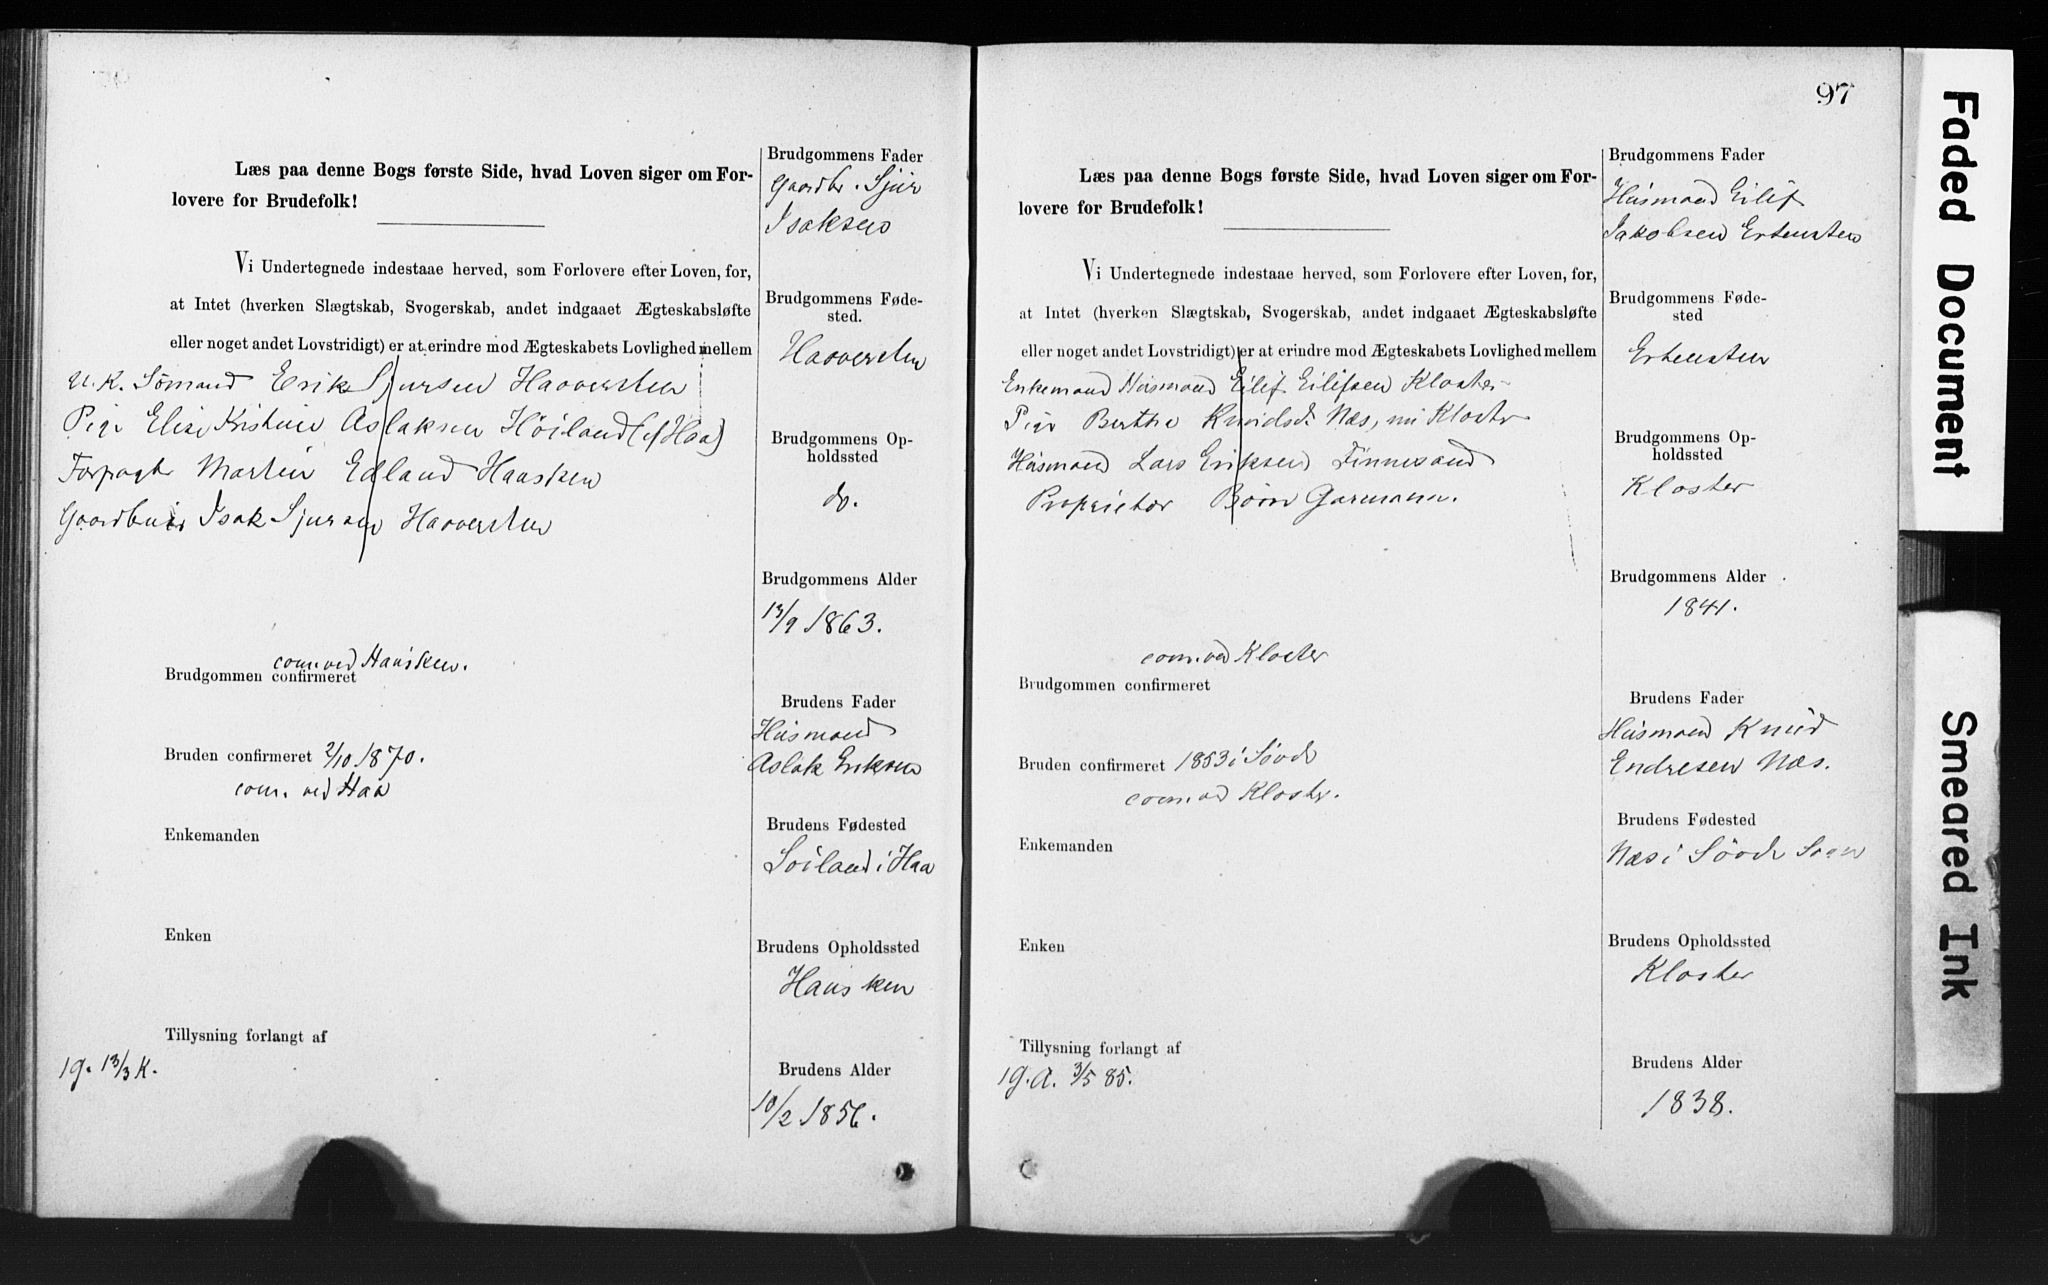 Læs paa denne Bogs første Side, hvad Loven siger om For-
lovere for Brudefolk!
Vi Undertegnede indestaae herved, som Forlovere efter Loven, for,
at Intet (hverken Slægtskab, Svogerskab, andet indgaaet Ægteskabsløfte
eller noget andet Lovstridigt) er at erindre mod Ægteskabets Lovlighed mellem
U. K. Sømand Erik Sjursen Haaversten
Pige Elise Kristine Aslaksen Høiland (af Haa)
Forpagter Martin Edland Hausken
Gaardbruger Isak Sjursen Haaversten
com. ved Hausken.
Brudgommen confirmeret
Bruden confirmeret 2/10 1870.
com. ved Haa
Enkemanden
Enken
Tillysning forlangt af
1g. 13/3 K.
Brudgommens Fader
Gaardbr. Sjur
Isaksen
Brudgommens Føde-
sted.
Haaversten
Brudgommens Op-
holdssted
do.
Brudgommens Alder
13/9 1863.
Brudens Fader
Husmand
Aslak Eriksen
Brudens Fødested
Søiland i Haa
Brudens Opholdssted
Hausken
Brudens Alder
10/2 1856.
97
Læs paa denne Bogs første Side, hvad Loven siger om For-
lovere for Brudefolk!
Vi Undertegnede indestaae herved, som Forlovere efter Loven, for,
at Intet (hverken Slægtskab, Svogerskab, andet indgaaet Ægteskabsløfte
eller noget andet Lovstridigt) er at erindre mod Ægteskabets Lovlighed mellem
Enkemand Husmand Eilif Eilifsen Kloster
Pige Berthe Knudsd. Næs, nu Kloster
Husmand Lars Eriksen Finnesand
Proprietær Bøin Garmann.
com. ved Kloster
Brudgommen confirmeret
Bruden confirmeret 1853 i Søvde
com. ved Kloster.
Enkemanden
Enken
Tillysning forlangt af
1g. A. 3/5 85.
Brudgommens Fader
Husmand Eilif
Jakobsen Ertensten
Brudgommens Føde-
sted
Ertensten
Brudgommens Op-
holdssted
Kloster
Brudgommens Alder
1841.
Brudens Fader
Husmand Knud
Endresen Næs.
Brudens Fødested
Næs i Søvde Sogn
Brudens Opholdssted
Kloster
Brudens Alder
1838.
Faded Document
Smeared Ink